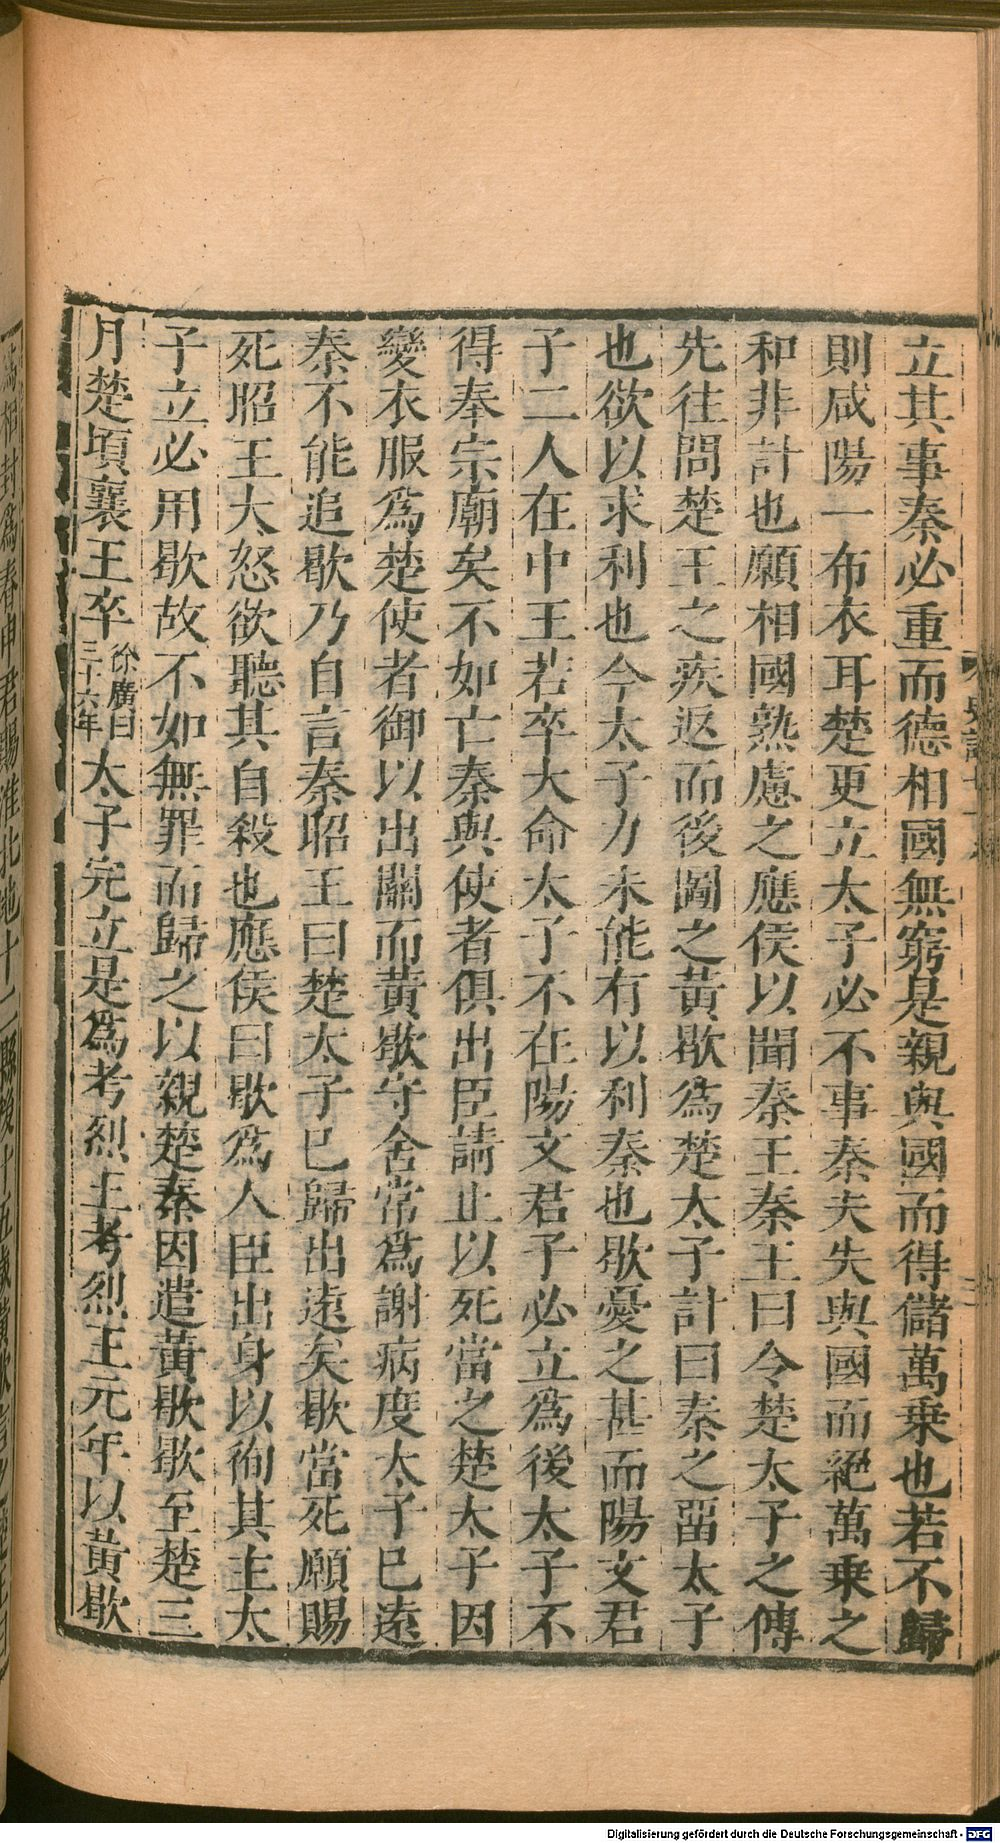 立其事秦必重而德相國無窮是親與國而得儲萬乗也若不歸
則咸陽一布衣耳楚更立太子必不事秦夫失與國而絕萬乗之
和非計也願相國熟慮之應侯以聞秦王秦王曰令楚太子之傅
先往問楚王之疾返而後圖之黃歇為楚太子計曰秦之畱太子
也欲以求利也今太子力未能有以利秦也歇憂之甚而陽文君
子二人在中王若卒大命太子不在陽文君子必立為後太子不
得奉宗廟矣不如亡秦與使者俱出臣請止以死當之楚太子因
變衣服為楚使者御以出關而黃歇守舍常為謝病度太子已遠
秦不能追歇乃自言秦昭王曰楚太子已歸出遠矣歇當死願賜
死昭王大怒欲聽其自殺也應侯曰歇為人臣出身以徇其主太
子立必用歇故不如無罪而歸之以親楚秦因遣黃歇歇至楚三
月楚頃襄王卒徐廣曰三十六年太子完立是為考烈王考烈王元年以黃歇
為相封為春申君賜淮北地十二縣後十五歲黃歇言之楚王曰
Digitalisierung gefördert durch die Deutsche Forschungsgemeinschaft - DFG